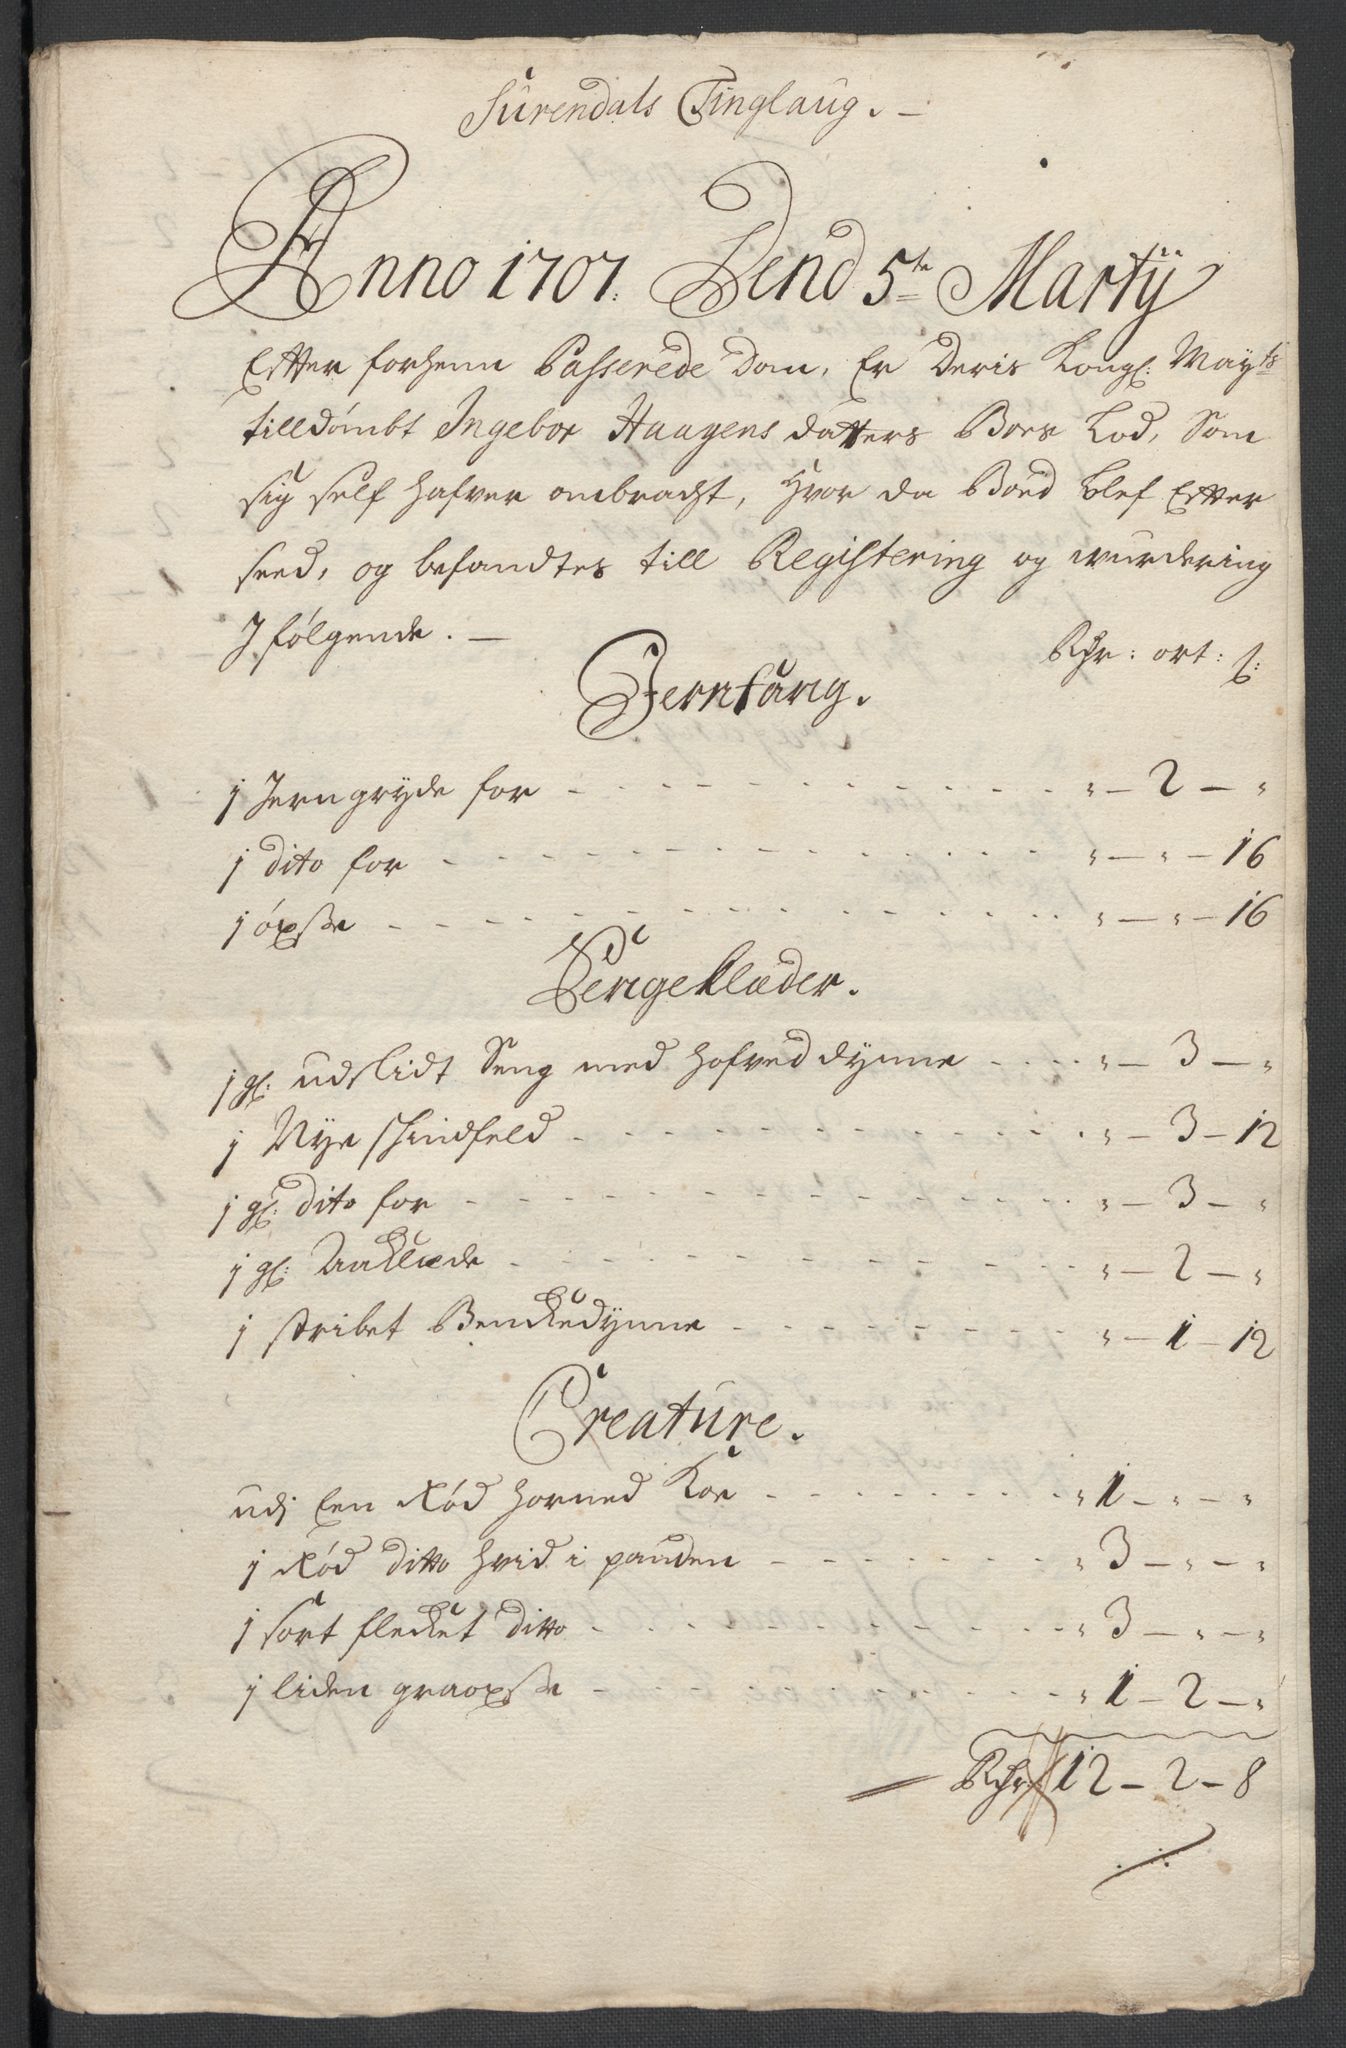 Surendals Tinglaug. –
Anno 1707. Dend 5te Martÿ
Effter forhenn Passerede Dom, Er Deris Kongl: Mayts
tilldømbt Ingebor Haagens datters Boes Lod, Som
sig self hafver ombracht, hvor da Boed blef Effter
seed, og befandtes till Registering og wurdering
I følgende. –
Rdr: ort: s:
Jernfang.
1 Jerngryde for - - - " – 2 – "
1 dito for - - - " – " – 16
1 øxse - - - " – " – 16
Sengeklæder.
1 gl: udslidt Seng med hofveddynne - - - " – 3 – "
1 Nye skindfeld - - - " – 3 – 12
1 gl: dito for - - - " – 3 – "
1 gl: Aaklæde - - - " – 2 – "
1 stribet Benckedynne - - - " – 1 – 12
Creature.
udj Een Rød horned Koe - - - " 1 – " – "
1 Rød ditto hvid i panden - - - " 3 – " – "
1 sort flecket ditto - - - " 3 – " – "
1 liden graaoxse - - - " 1 – 2 – "
Rdr 12 – 2 – 8